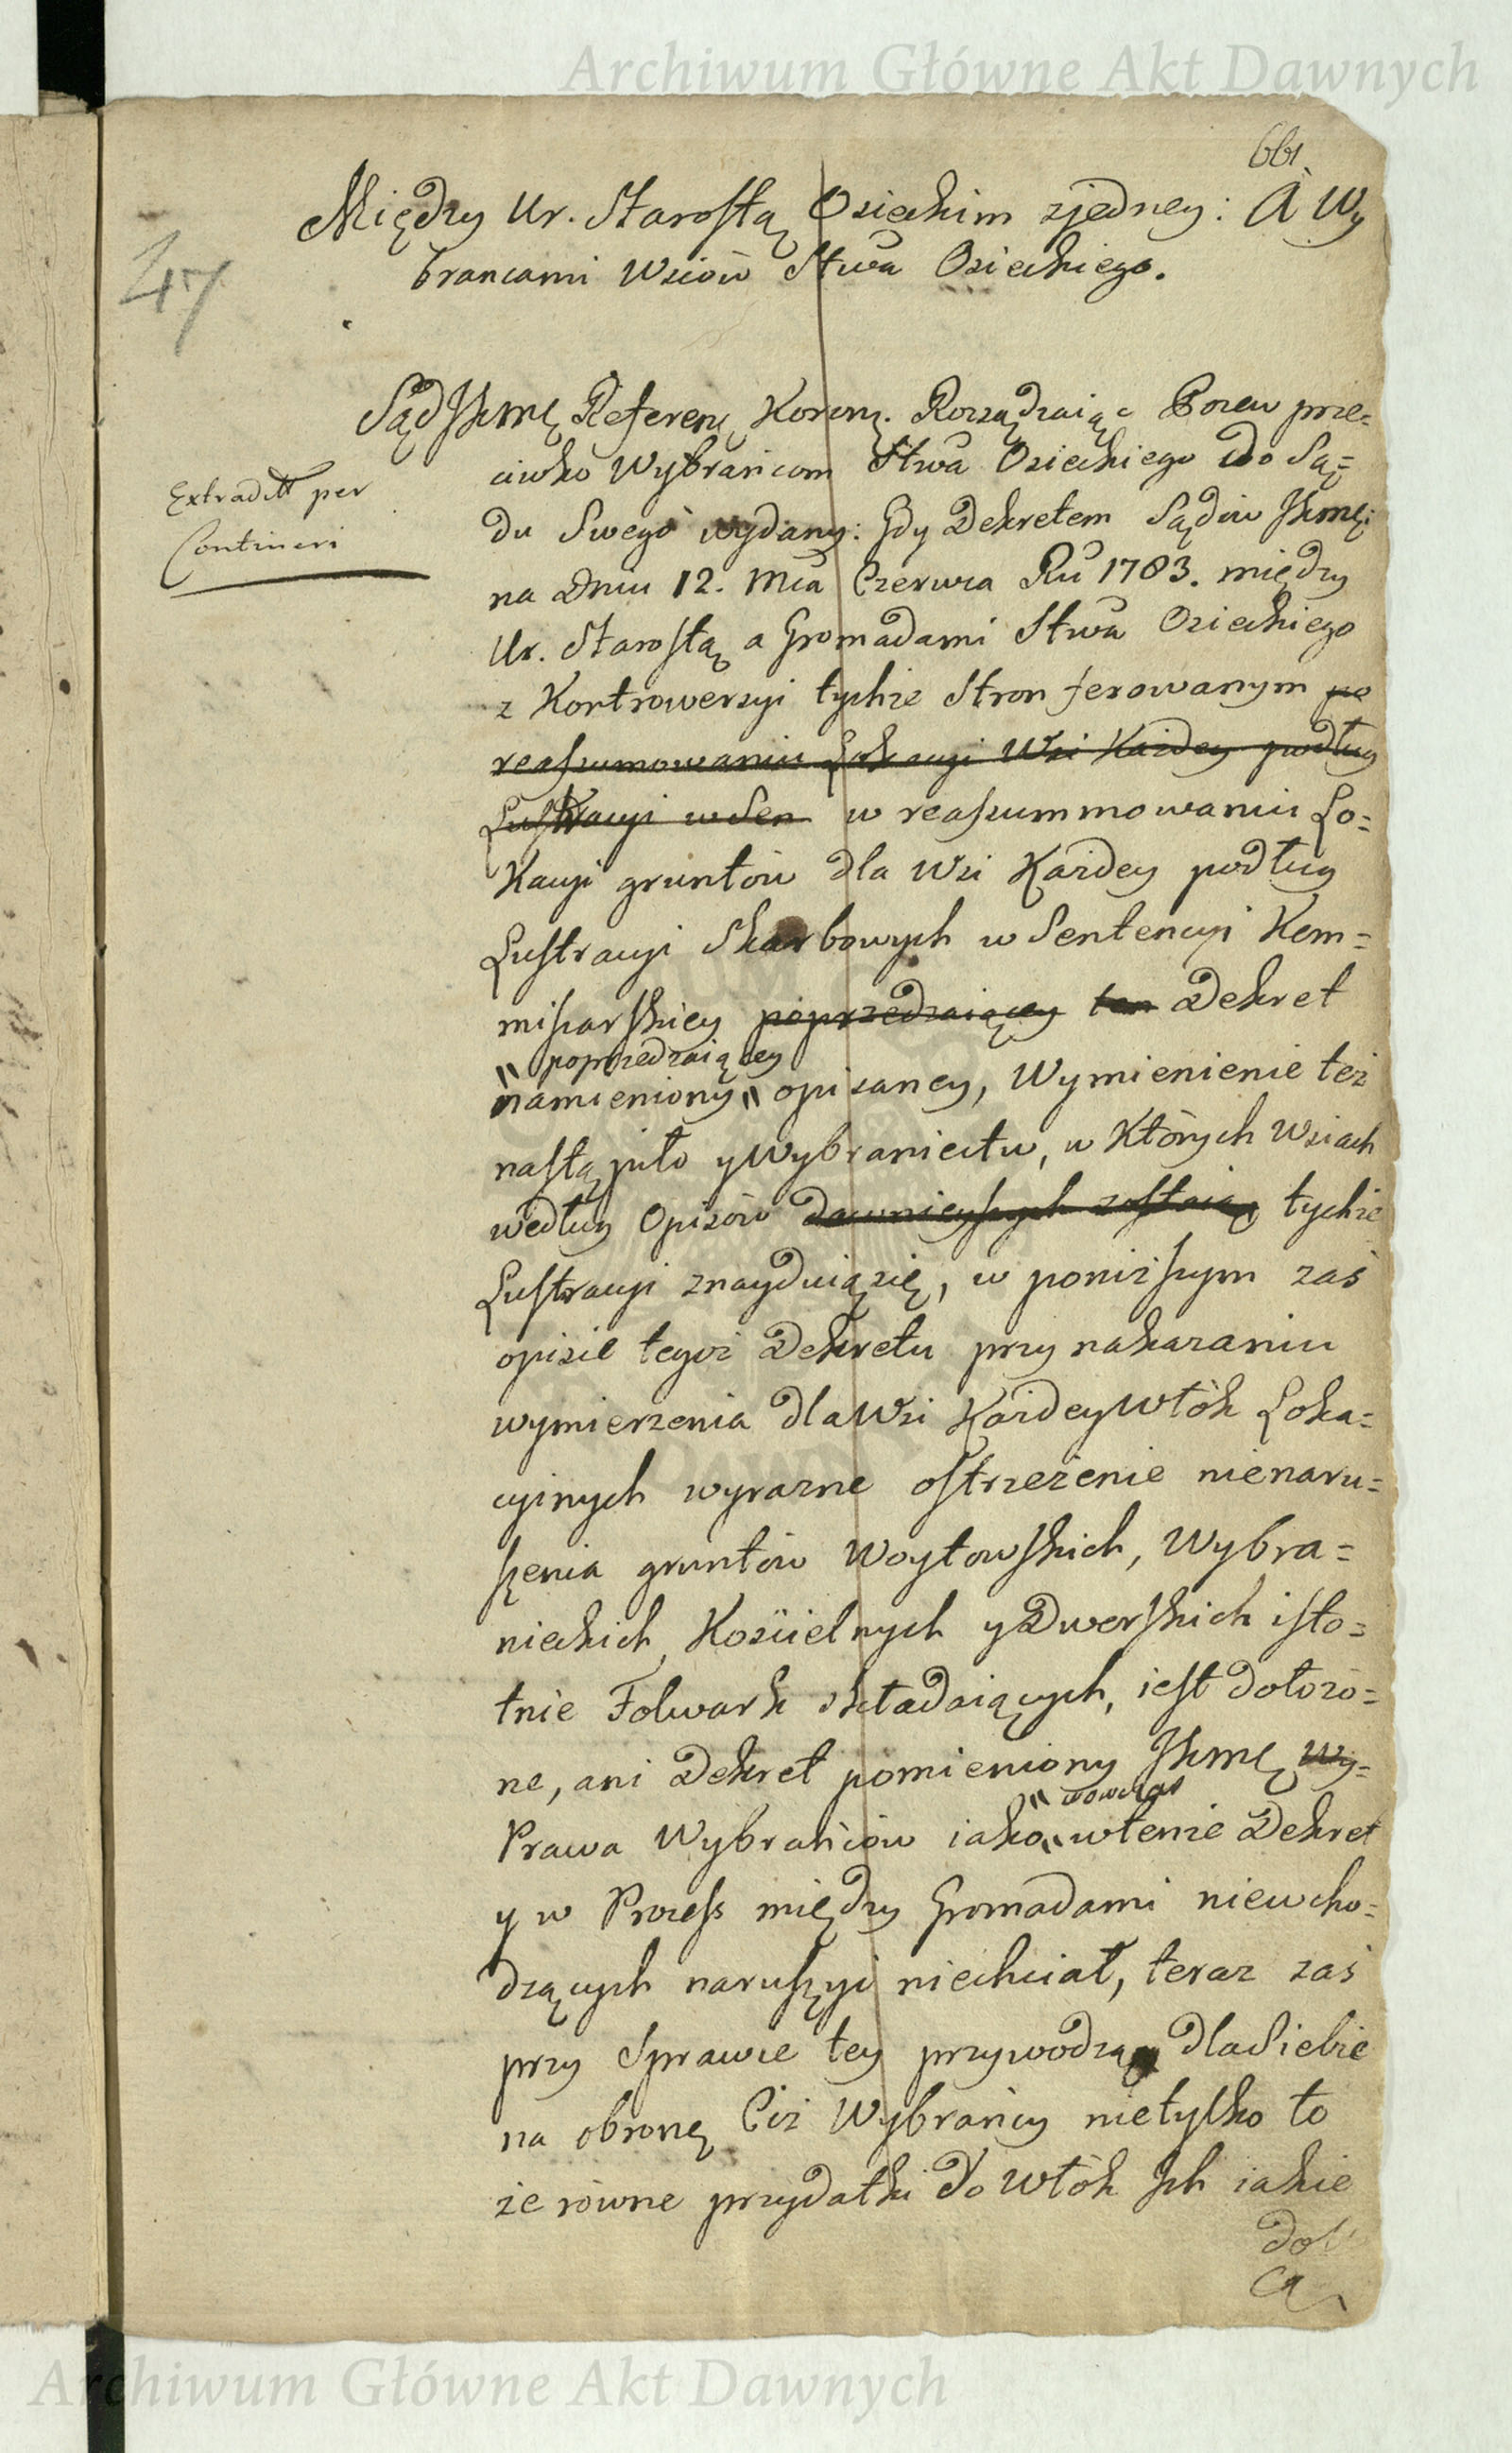 Archiwum Główne Akt Dawnych
661.
47
Między Ur. Starostą Osieckim zjedney: A Wy
brancami Wsiów Stwa Osieckiego.
Extradtt per
Contineri
Sąd JKmę Referen. Koronę. Rozsądzaiąc Pozew prze=
ciwko Wybrańcom Stwa Osieckiego do Są=
du Swego wydany: Gdy Dekretem Sądów JKmę:
na Dniu 12. Mca Czerwca Ru 1783. między
Ur. Starostą a Gromadami Stwa Osieckiego
z Kontrowersyi tychże Stron ferowanym po
reassumowaniu Lokacyi Wsi Każdey podług
Lustracyi w Sen w reassummowaniu Lo=
Kacyi gruntów dla Wsi Każdey podług
Lustracyi Skarbowych w Sentencyi Kom=
missarskiey poprzedzaiącey ten Dekret
" poprzedzaiącey
namieniony " opisaney, Wymienienie też
nastąpiło y Wybraniectw, w Których Wsiach
według Opisów dawnieyszych zostaią tychże
Lustracyi znayduią się, w poniższym zaś
opisie tegoż Dekretu przy nakazaniu
wymierzenia dla Wsi Każdey Włók Loka=
cyinych wyrazne ostrzeżenie nienaru=
szenia gruntów Woytowskich, Wybra=
nieckich, Kościelnych y Dworskich isto=
tnie Folwark składaiących, iest dołożo=
ne, ani Dekret pomieniony JKmę Wy=
" wowczas
Prawa Wybrańców iako " wtenże Dekret
y w Process między Gromadami niewcho=
dzących naruszyć niechciał, teraz zaś
przy Sprawie tey przywodzą dla Siebie
na obronę Ciż Wybrańcy nietylko to
że równe przydatki do Włók Ich iakie
Archiwum Główne Akt Dawnych